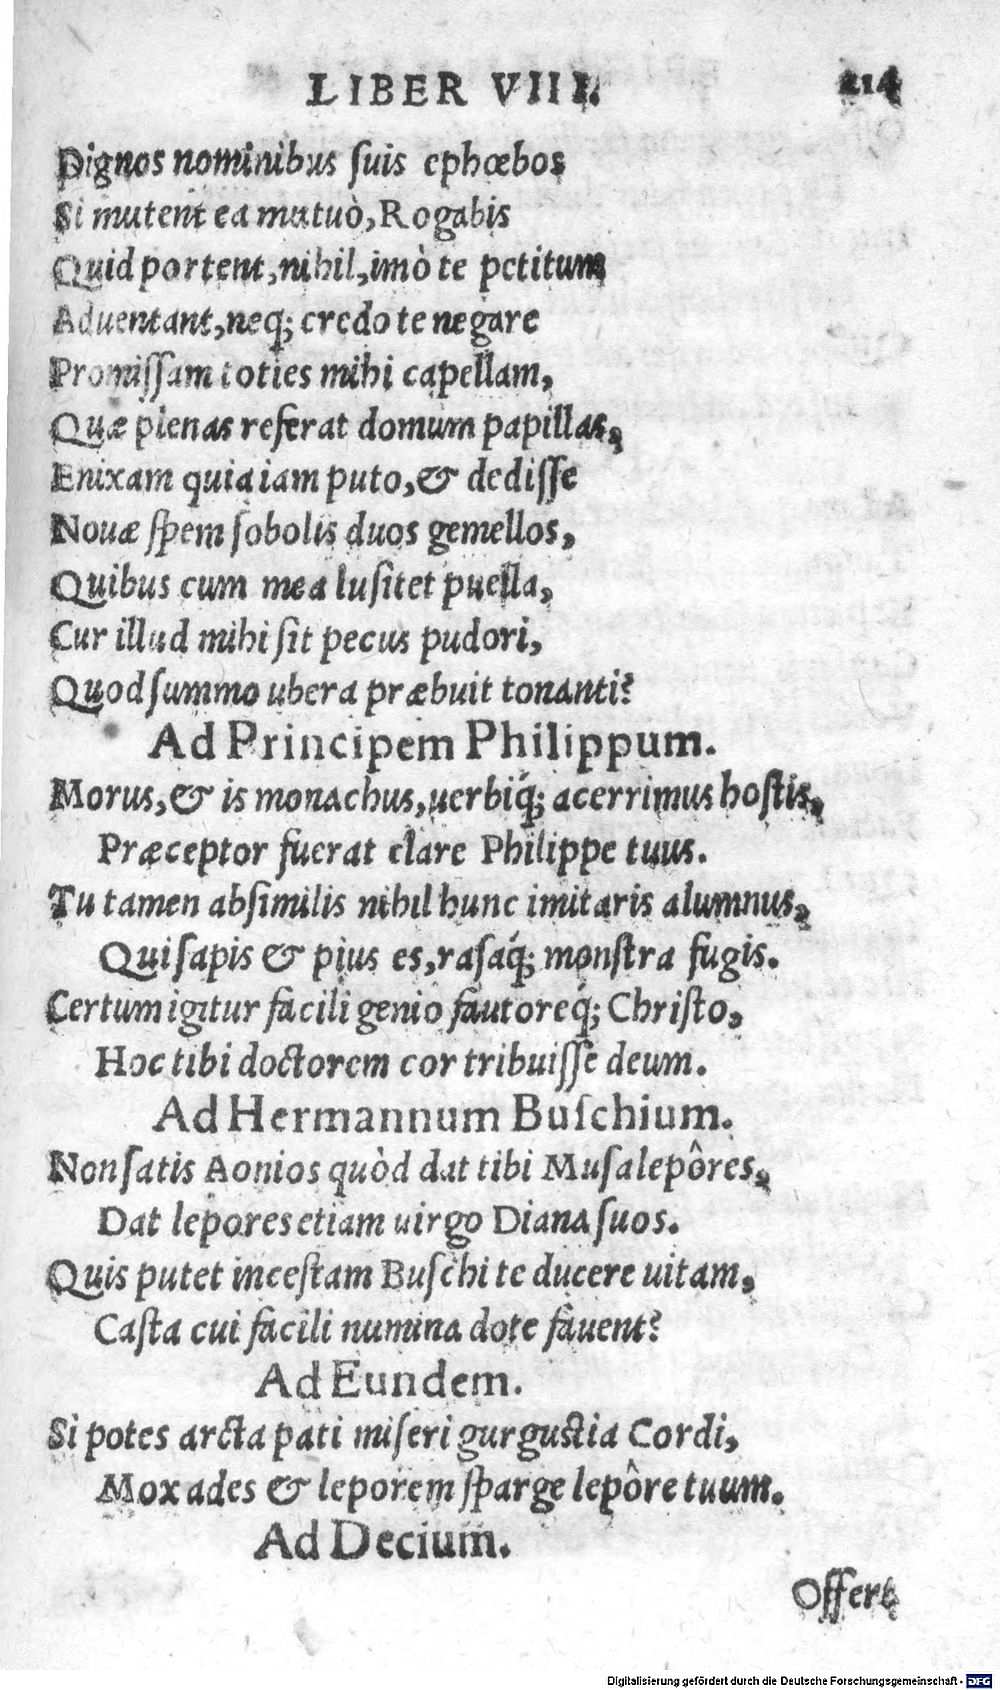 LIBER VIII. 214
Dignos nominibus ſuis ephœbos
Si mutent ea mutuò, Rogabis
Quid portent, nihil, imò te petitum
Aduentant, neq; credo te negare
Promiſſam toties mihi capellam,
Quæ plenas referat domum papillas,
Enixam quia iam puto, & dediſſe
Nouæ ſpem ſobolis duos gemellos,
Quibus cum mea luſitet puella,
Cur illud mihi ſit pecus pudori,
Quod ſummo ubera præbuit tonanti?
Ad Principem Philippum.
Morus, & is monachus, uerbiq́; acerrimus hoſtis,
Præceptor fuerat clare Philippe tuus.
Tu tamen abſimilis nihil hunc imitaris alumnus,
Qui ſapis & pius es, raſaq́; monſtra fugis.
Certum igitur facili genio fautoreq́; Chriſto,
Hoc tibi doctorem cor tribuiſſe deum.
Ad Hermannum Buſchium.
Non ſatis Aonios quòd dat tibi Muſa lepôres,
Dat lepores etiam uirgo Diana ſuos.
Quis putet inceſtam Buſchi te ducere uitam,
Caſta cui facili numina dote fauent?
Ad Eundem.
Si potes arcta pati miſeri gurguſtia Cordi,
Mox ades & leporem ſparge lepôre tuum.
Ad Decium.
Offert
Digitalisierung gefördert durch die Deutsche Forschungsgemeinschaft - DFG